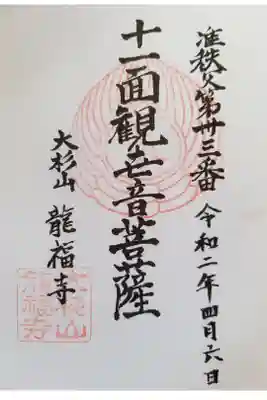 准秩父第卅三番 令和二年四月六日
十一面観世音菩薩
大杉山 龍福寺